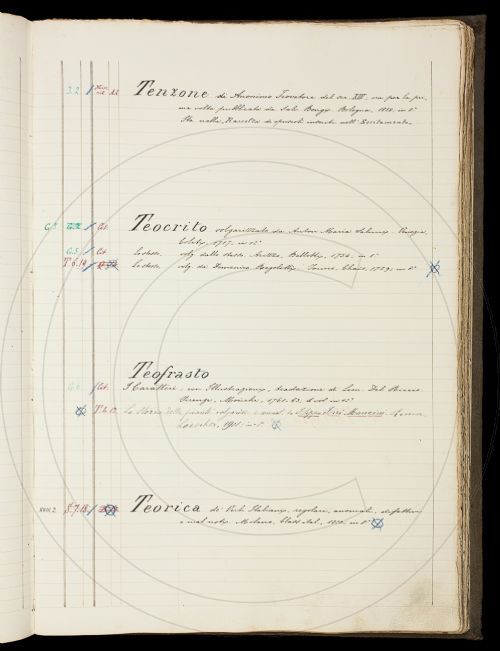 J. 2. Tenzone di Anonimo Trovatore del sec. XIII. ora per la pri-
ma volta pubblicata da Salv. Bongi. Bologna, 1880. in 8°
Sta nella Raccolta di opuscoli
Cit. Teocrito volgarizzato da Anton Maria Salvini. Venezia,
Coleti, 1717. in 12°
G. 5. Cit. Lo stesso. volg. dallo stesso. Arezzo, Bellotti, 1754. in 8°
T. 6. 14 Lo stesso. volg. da Domenico Regolotti. Torino, Chais, 1729. in 8°
Teofrasto
G. 6. Cit. I Caratteri, con Illustrazioni, traduzione di Leon. Del Riccio
Firenze, Moücke, 1761-63. in 12°
La Storia delle piante volgarizz. e annot. da Filippo Ferri Mancini. Roma
Loescher, 1901. in 8°
XVIII 2. Teorica dei Verbi Italiani, regolari, anomali, difettivi
e mal noti. Milano, Class. Ital. in 8°